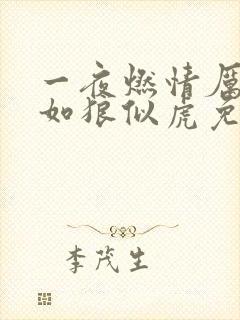 一夜燃情厉
如狼似虎免
李茂生